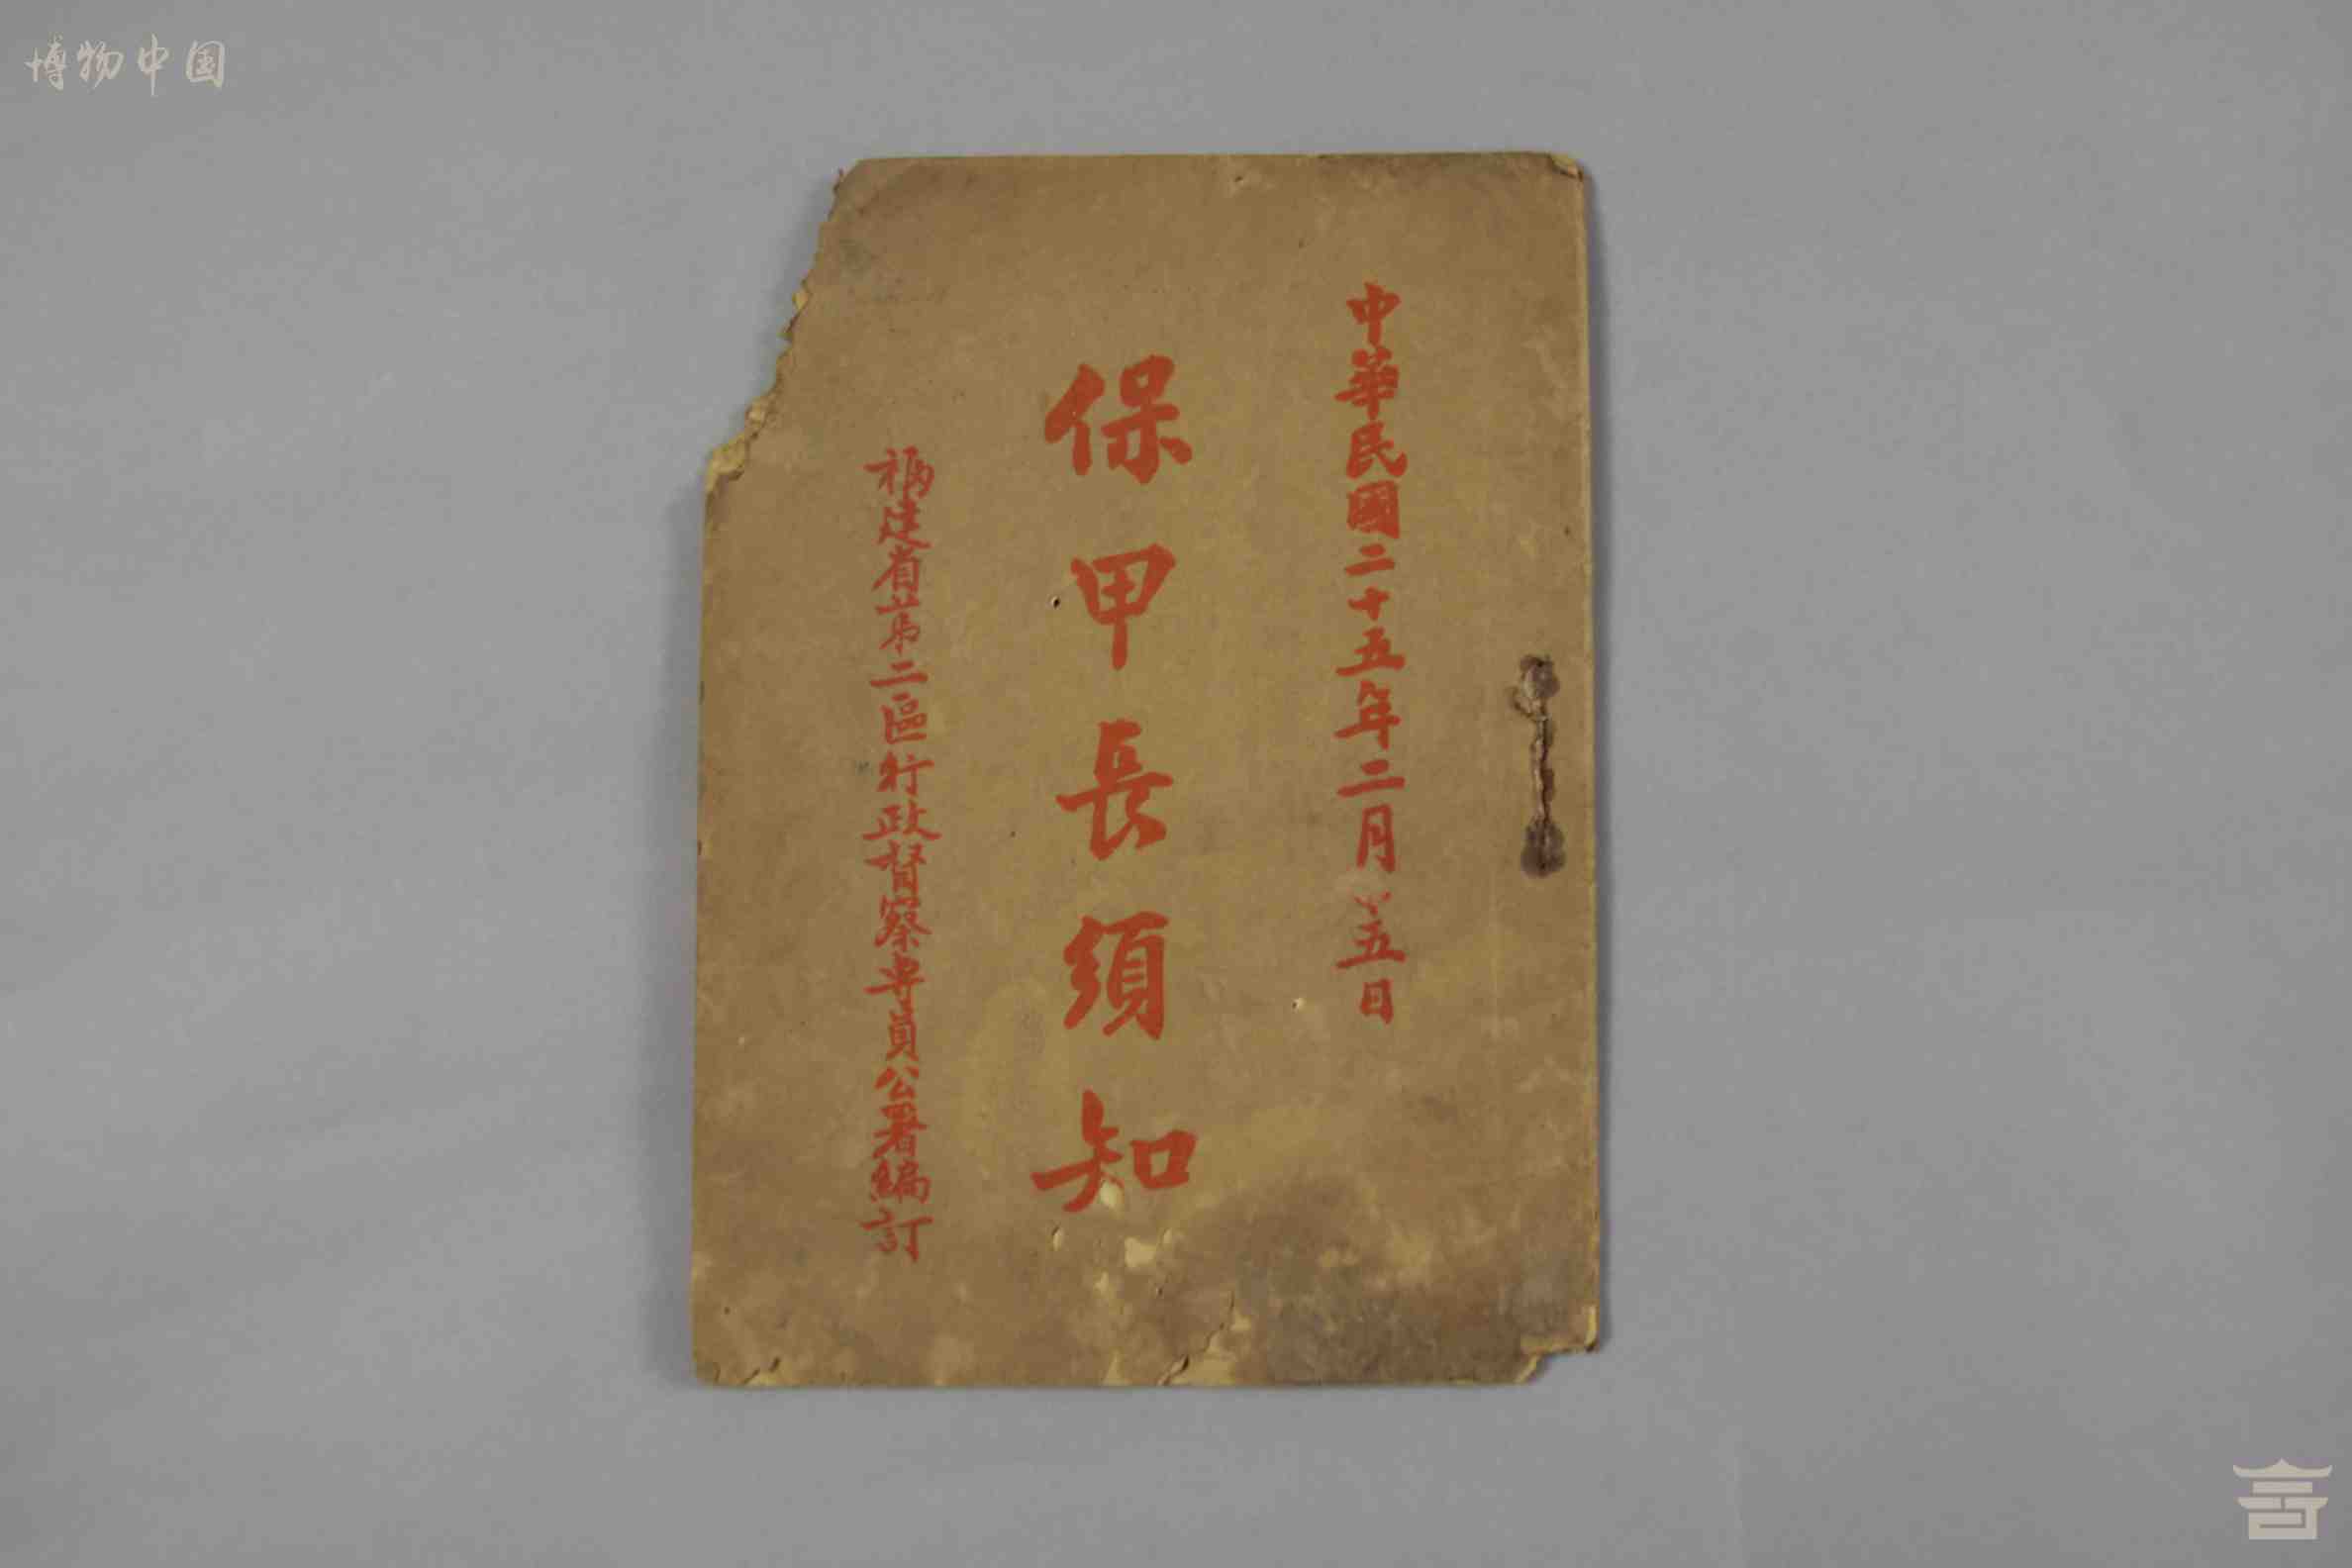 博物中国
中華民國二十五年二月十五日
保甲長須知
福建省第二區行政督察專員公署編訂